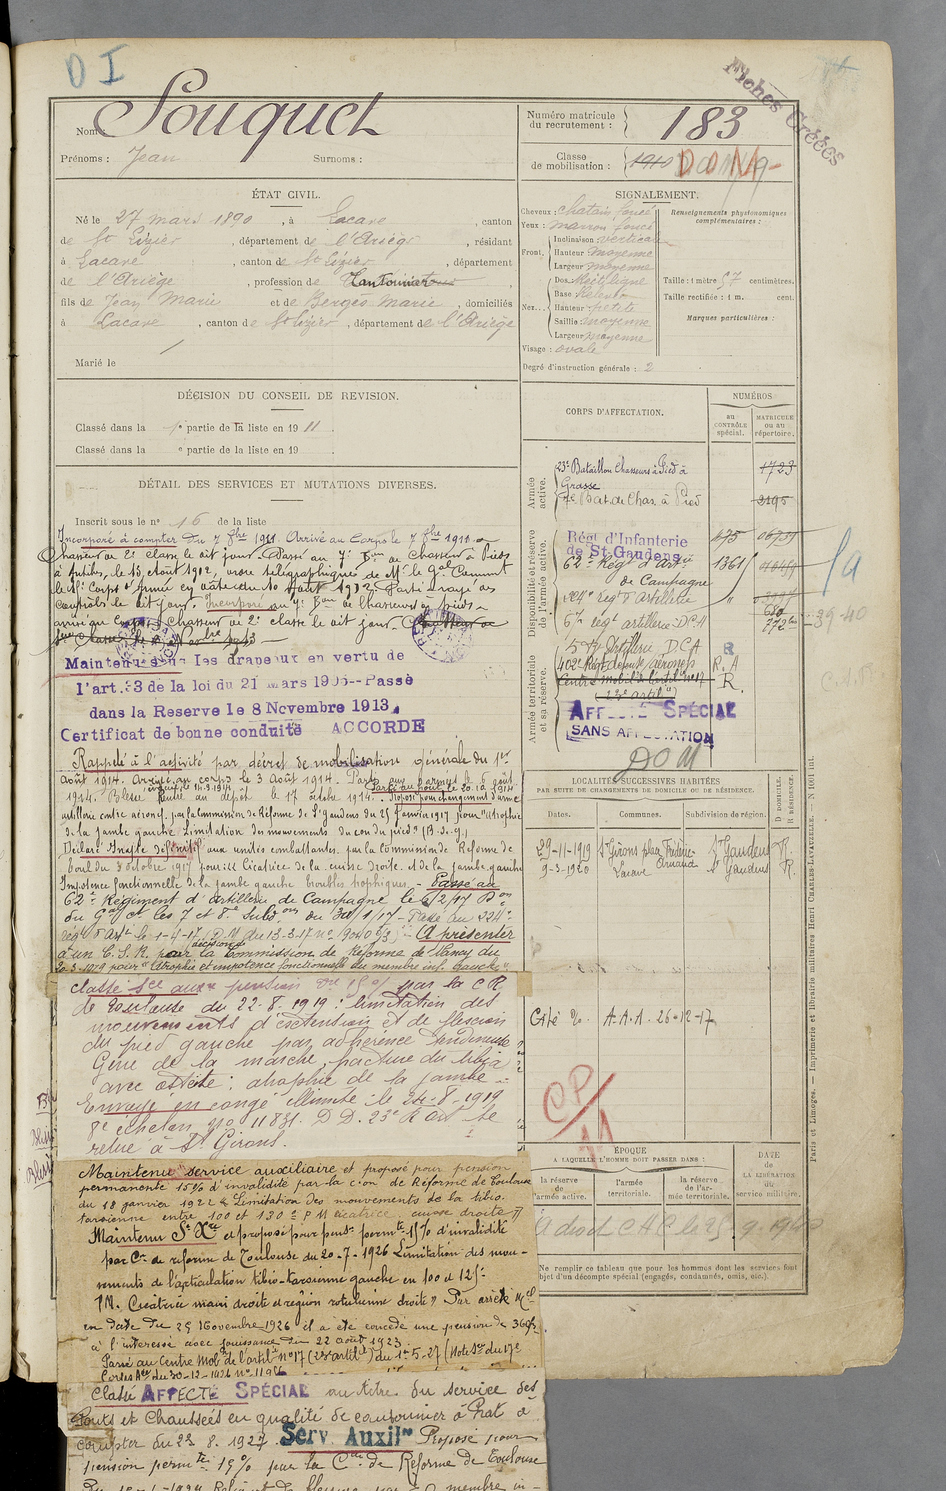 D I
Fiches Créées
Nom : Souquet
Prénoms : Jean Surnoms :
Numéro matricule du recrutement : 183
Classe de mobilisation : 1910
ÉTAT CIVIL.
Né le 27 mars 1890, à Lacave, canton
de St Lizier, département de l'Ariège, résidant
à Lacave, canton de St Lizier, département
de l'Ariège, profession de Cantonnier
fils de Jean Marie et de Bergès Marie, domiciliés
à Lacave, canton de St Lizier, département de l'Ariège
Marié le /
SIGNALEMENT.
Cheveux : chatain foncé
Yeux : marron foncé
Front. Inclinaison : verticale
Hauteur moyenne
Largeur moyenne
Nez... Dos Rectiligne
Base Relevée
Hauteur petite
Saillie : moyenne
Largeur moyenne
Visage : ovale
Renseignements physionomiques complémentaires :
Taille : 1 mètre 57 centimètres.
Taille rectifiée : 1 m. cent.
Marques particulières :
Degré d'instruction générale : 2
DÉCISION DU CONSEIL DE REVISION.
Classé dans la 1e partie de la liste en 1911.
Classé dans la e partie de la liste en 19
DÉTAIL DES SERVICES ET MUTATIONS DIVERSES.
Inscrit sous le no 16 de la liste
Incorporé à compter du 7 8bre 1911. Arrivé au Corps le 7 8bre 1911
Chasseur de 2e classe le dit jour. Passé au 7e Bon de Chasseurs à Pieds
à Antibes, le 15 Août 1912, ordre télégraphique de Mr le Gal Commt
le 15e Corps d'armée en date du 10 Août 1912. Rayé des
contrôles le dit jour. Incorporé au 7e Bon de Chasseurs à pieds
arrivé au Corps Chasseur de 2e classe le dit jour.
Maintenu sous les drapeaux en vertu de
l'art. 33 de la loi du 21 Mars 1905--Passé
dans la Reserve le 8 Novembre 1913.
Certificat de bonne conduite ACCORDE
Rappelé à l'activité par décret de mobilisation générale du 1er
août 1914. Arrivé au corps le 3 Août 1914.
1914. Blessé Rentré au dépôt le 17 octobre 1914. Proposé pour changement d'arme
artillerie par la Commission de Réforme de St Gaudens du 25 Janvier 1917 pour "atrophie
de la jambe gauche Limitation des mouvements du cou du pied" (B.S.G.)
Déclaré Inapte définitif aux unités combattantes par la Commission de Réforme de
Toul du 3 octobre 1917 pour Cicatrice de la cuisse droite et de la jambe gauche
Impotence fonctionnelle de la jambe gauche troubles trophiques. Passé au
62e Régiment d'Artillerie de Campagne le 6/2/17
Passé au 224e
Régt d'Art le 1-4-17 (D.M. du 13-3-17 A présenter
à un C.S.R. par décision de la Commission de Réforme de Nancy du
20-3-1919 pour "Atrophie et impotence fonctionnelle du membre inf. gauche"
Classé Sce aux pension 15% par la C.R.
de Toulouse du 22-8-1919 : limitation des
mouvements d'extension et de flexion
du pied gauche par adhérence tendineuse
Gêne de la marche, fracture du tibia
avec ostéite ; atrophie de la jambe
Envoyé en congé illimité le 24-8-1919
8e échelon no 11831 D.D. 23e R art Se
retire à St Girons.
Maintenu service auxiliaire et proposé pour pension
permanente 15% d'invalidité par la con de Réforme de Toulouse
du 18 janvier 1922 Limitation des mouvements de la tibio
tarsienne entre 100 et 130° cicatrice cuisse droite
Maintenu Sce Xre et proposé pour pens. permte 15% d'invalidité
par Con de réforme de Toulouse du 20-7-1926 Limitation des mou-
vements de l'articulation tibio-tarsienne gauche en 100 et 125°
Cicatrice main droite et région rotulienne droite. Par arrêté
en date du 25 Novembre 1926 il a été concédé une pension de 360f
à l'intéressé avec jouissance du 22 août 1923
Passé au Centre Mobr de l'artie no 17 (23e artie) du 1er-5-27 (Note Sce du 17e
Corps du 30-12-1926
Classé AFFECTÉ SPÉCIAL au titre du service des
Ponts et Chaussées en qualité de cantonnier à Prat à
compter du 23.8.1927. Serv. Auxilre Proposé pour
pension permte 15% par la Con de Réforme de Toulouse
CORPS D'AFFECTATION.
NUMÉROS
au CONTRÔLE spécial.
MATRICULE ou au répertoire.
Armée active.
23e Bataillon Chasseurs à Pied à Grasse 1723
7e Bat. de Chas. à Pied 2195
Disponibilité et réserve de l'armée active.
Régt d'Infanterie de St Gaudens 675
62e Régt d'Artie de Campagne 1361
224e régt d'artillerie
67e régt artillerie DCA
39-40
Armée territoriale et sa réserve.
5e Artillerie D.C.A
402e Régt
Centre mobil. de l'artie no 17 (23e artie) R.
AFFECTÉ SPÉCIAL
SANS AFFECTATION
DOM
LOCALITÉS SUCCESSIVES HABITÉES
PAR SUITE DE CHANGEMENTS DE DOMICILE OU DE RÉSIDENCE.
Dates. Communes. Subdivision de région. D DOMICILE. R RÉSIDENCE.
29-11-1919 St Girons place Frédéric Arnaud St Gaudens R.
9-3-1920 Lacave St Gaudens R.
Cité A.A.1. 26-12-17
CP/11
ÉPOQUE
A LAQUELLE L'HOMME DOIT PASSER DANS :
la réserve de l'armée active. l'armée territoriale. la réserve de l'armée territoriale.
DATE de LA LIBÉRATION du service militaire.
Ne remplir ce tableau que pour les hommes dont les services font
objet d'un décompte spécial (engagés, condamnés, omis, etc.).
Paris et Limoges. — Imprimerie et librairie militaires Henri CHARLES-LAVAUZELLE. — N 1001 int.